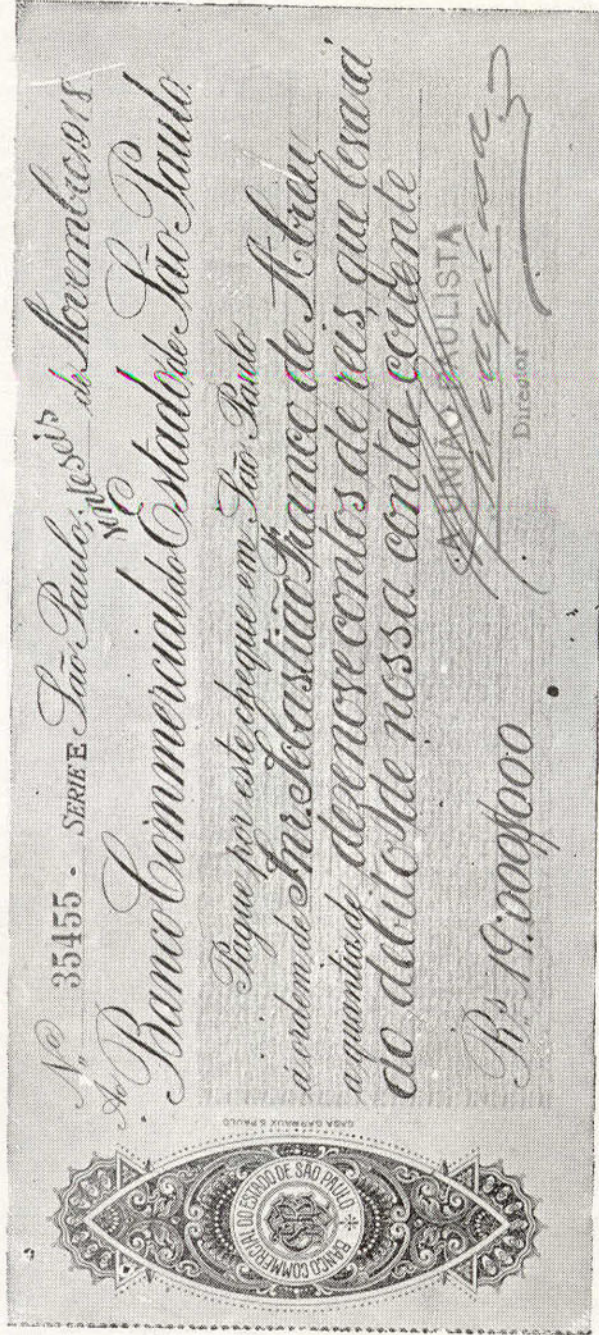 Nº 35455 - SERIE E São Paulo, vinteseis de Novembro 1918
Ao Banco Commercial do Estado de São Paulo.
Pague por este cheque em São Paulo
á ordem de Snr. Sebastião Franco de Abreu
a quantia de dezenove contos de reis, que levará
ao debito de nossa conta corrente
A UNIÃO PAULISTA
Rs 19:000$000
Director
BANCO COMMERCIAL DO ESTADO DE SÃO PAULO
CASA GARRAUX S. PAULO